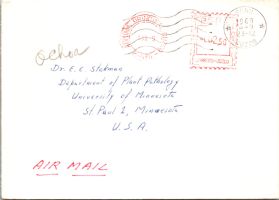 Ochoa
Dr. E. C. Stakman
Department of Plant Pathology
University of Minnesota
St. Paul 1, Minnesota
U. S. A.
AIR MAIL